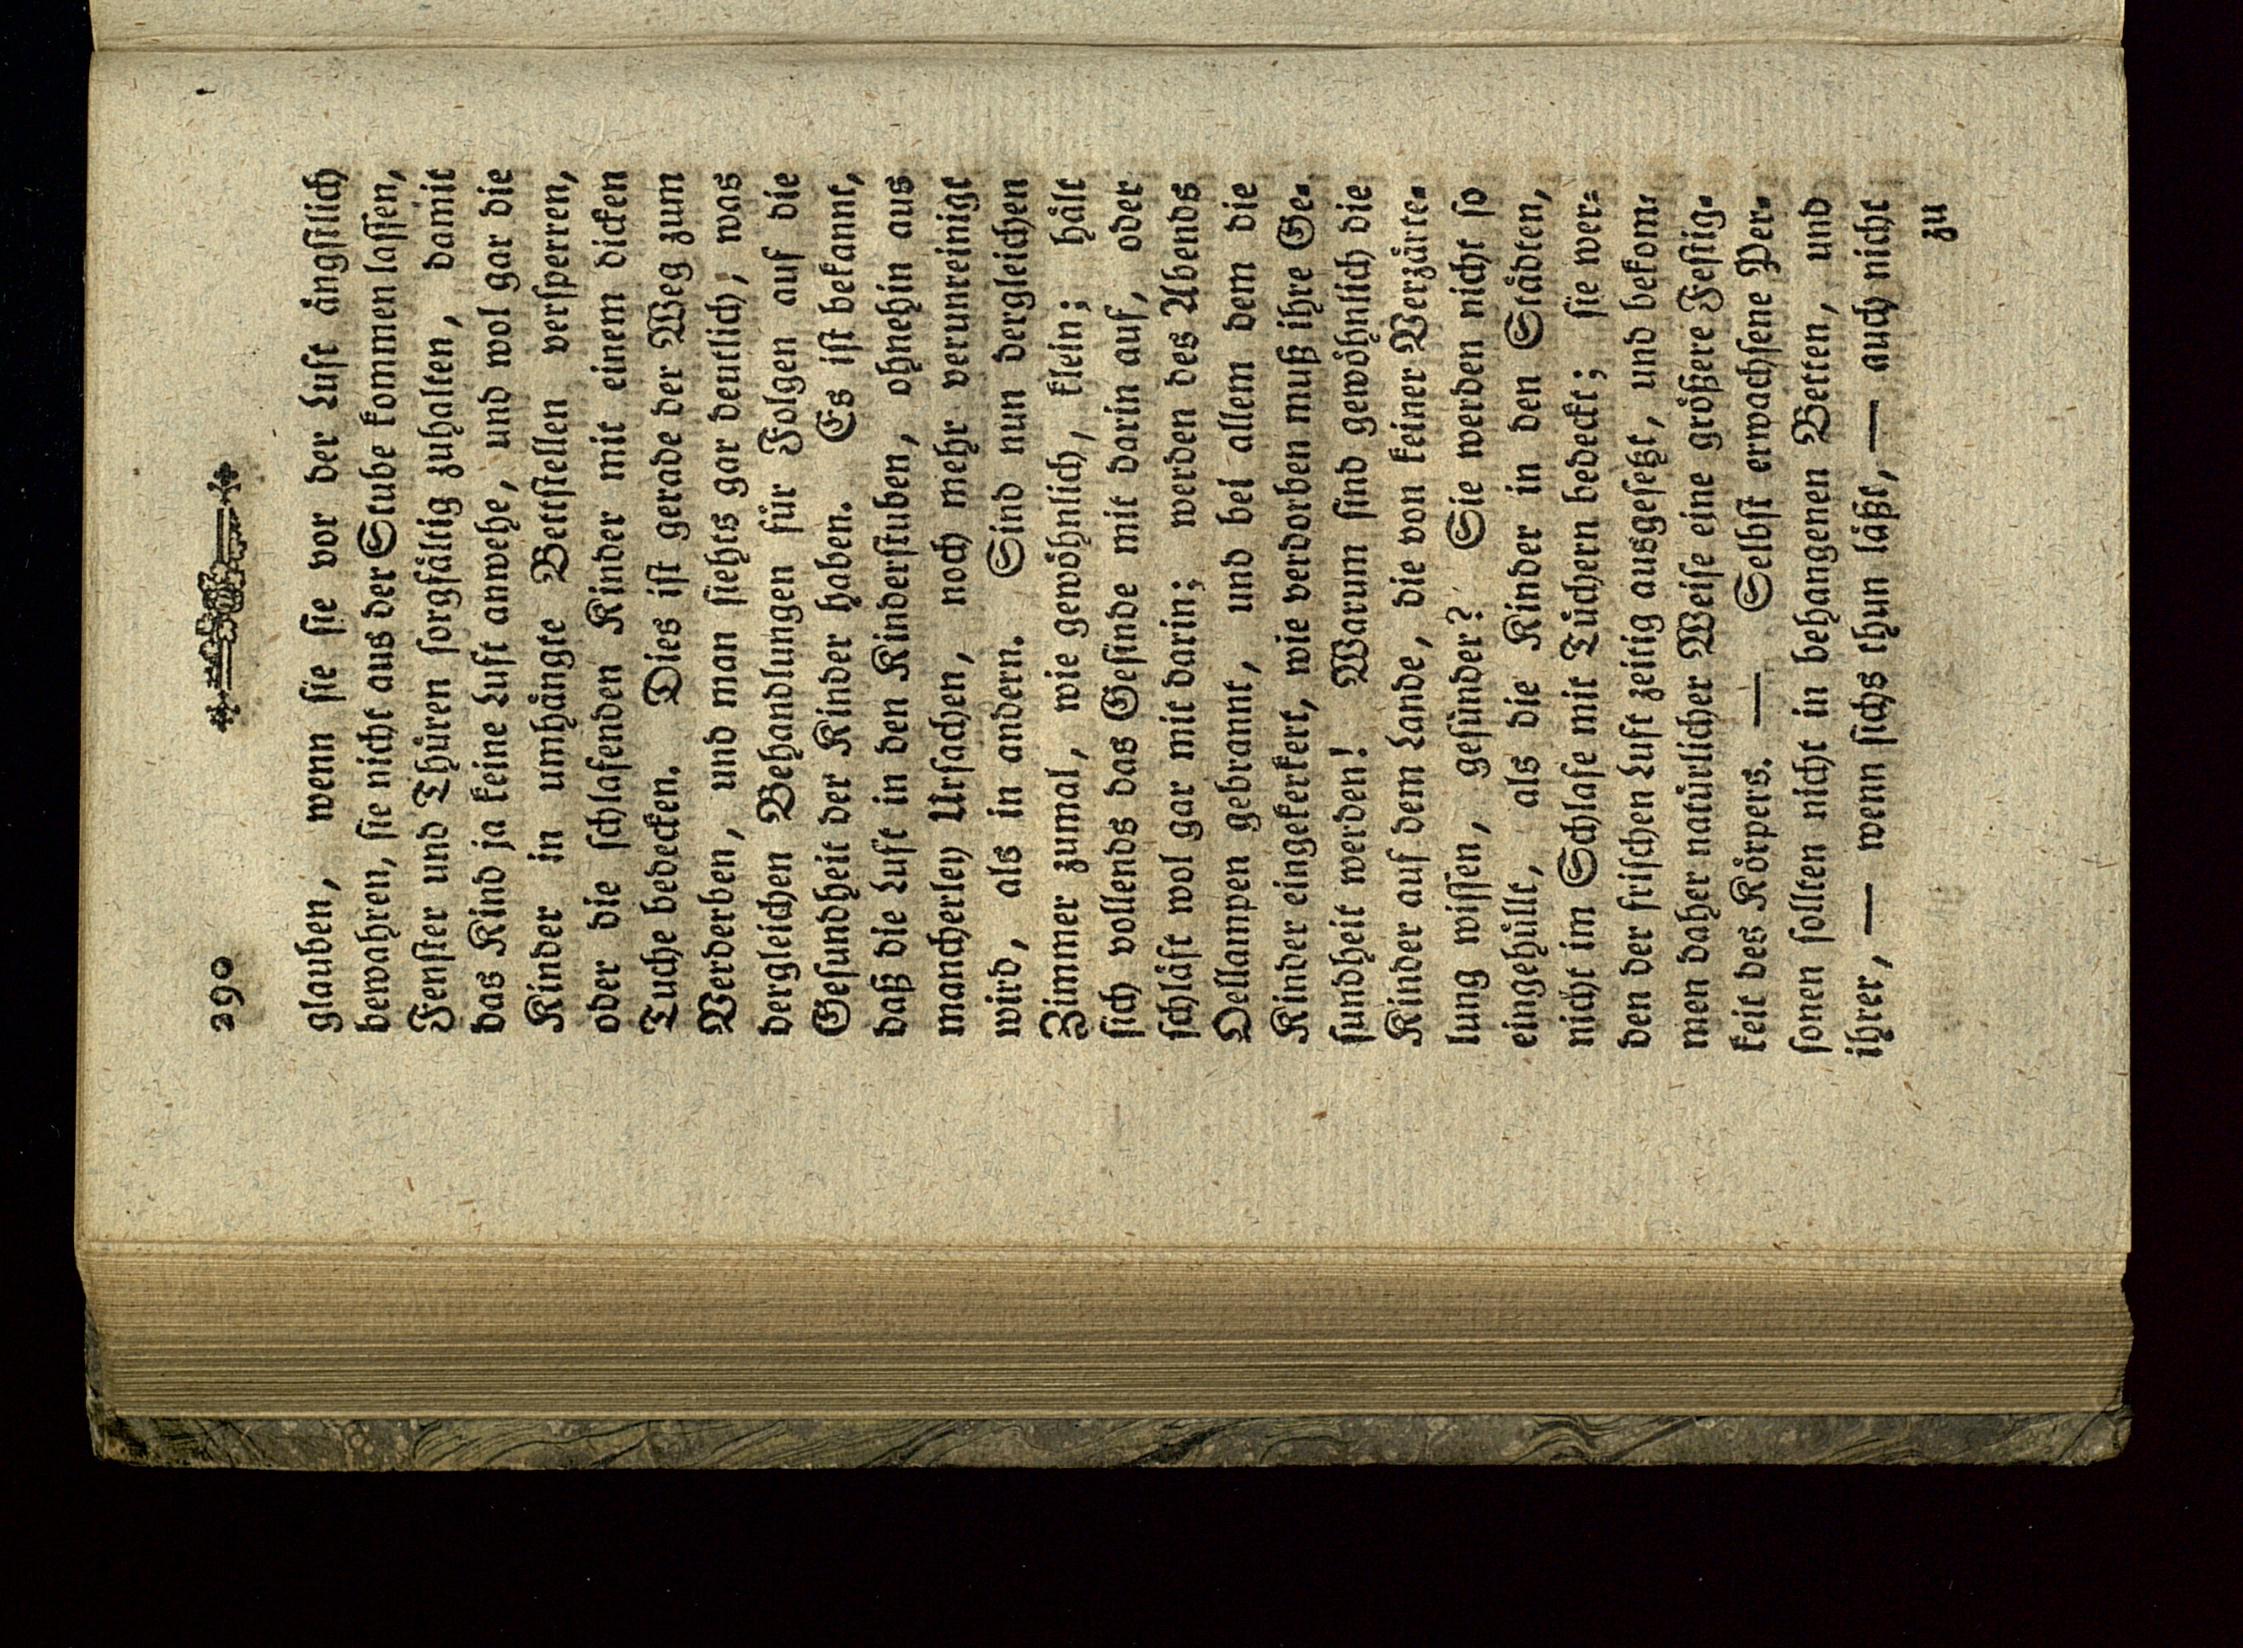 290
glauben, wenn ſie ſie vor der Luft ängſtlich
bewahren, ſie nicht aus der Stube kommen laſſen,
Fenſter und Thüren ſorgfältig zuhalten, damit
das Kind ja keine Luft anwehe, und wol gar die
Kinder in umhängte Bettſtellen verſperren,
oder die ſchlafenden Kinder mit einem dicken
Tuche bedecken. Dies iſt gerade der Weg zum
Verderben, und man ſiehts gar deutlich, was
dergleichen Behandlungen für Folgen auf die
Geſundheit der Kinder haben. Es iſt bekannt,
daß die Luft in den Kinderſtuben, ohnehin aus
mancherley Urſachen, noch mehr verunreinigt
wird, als in andern. Sind nun dergleichen
Zimmer zumal, wie gewöhnlich, klein; hält
ſich vollends das Geſinde mit darin auf, oder
ſchläft wol gar mit darin; werden des Abends
Oellampen gebrannt, und bei allem dem die
Kinder eingekerkert, wie verdorben muß ihre Ge-
ſundheit werden! Warum ſind gewöhnlich die
Kinder auf dem Lande, die von keiner Verzärte-
lung wiſſen, geſünder? Sie werden nicht ſo
eingehüllt, als die Kinder in den Städten,
nicht im Schlafe mit Tüchern bedeckt; ſie wer-
den der friſchen Luft zeitig ausgeſetzt, und bekom-
men daher natürlicher Weiſe eine größere Feſtig-
keit des Körpers. — Selbſt erwachſene Per-
ſonen ſollten nicht in behangenen Betten, und
ihrer, — wenn ſichs thun läßt, — auch nicht
zu